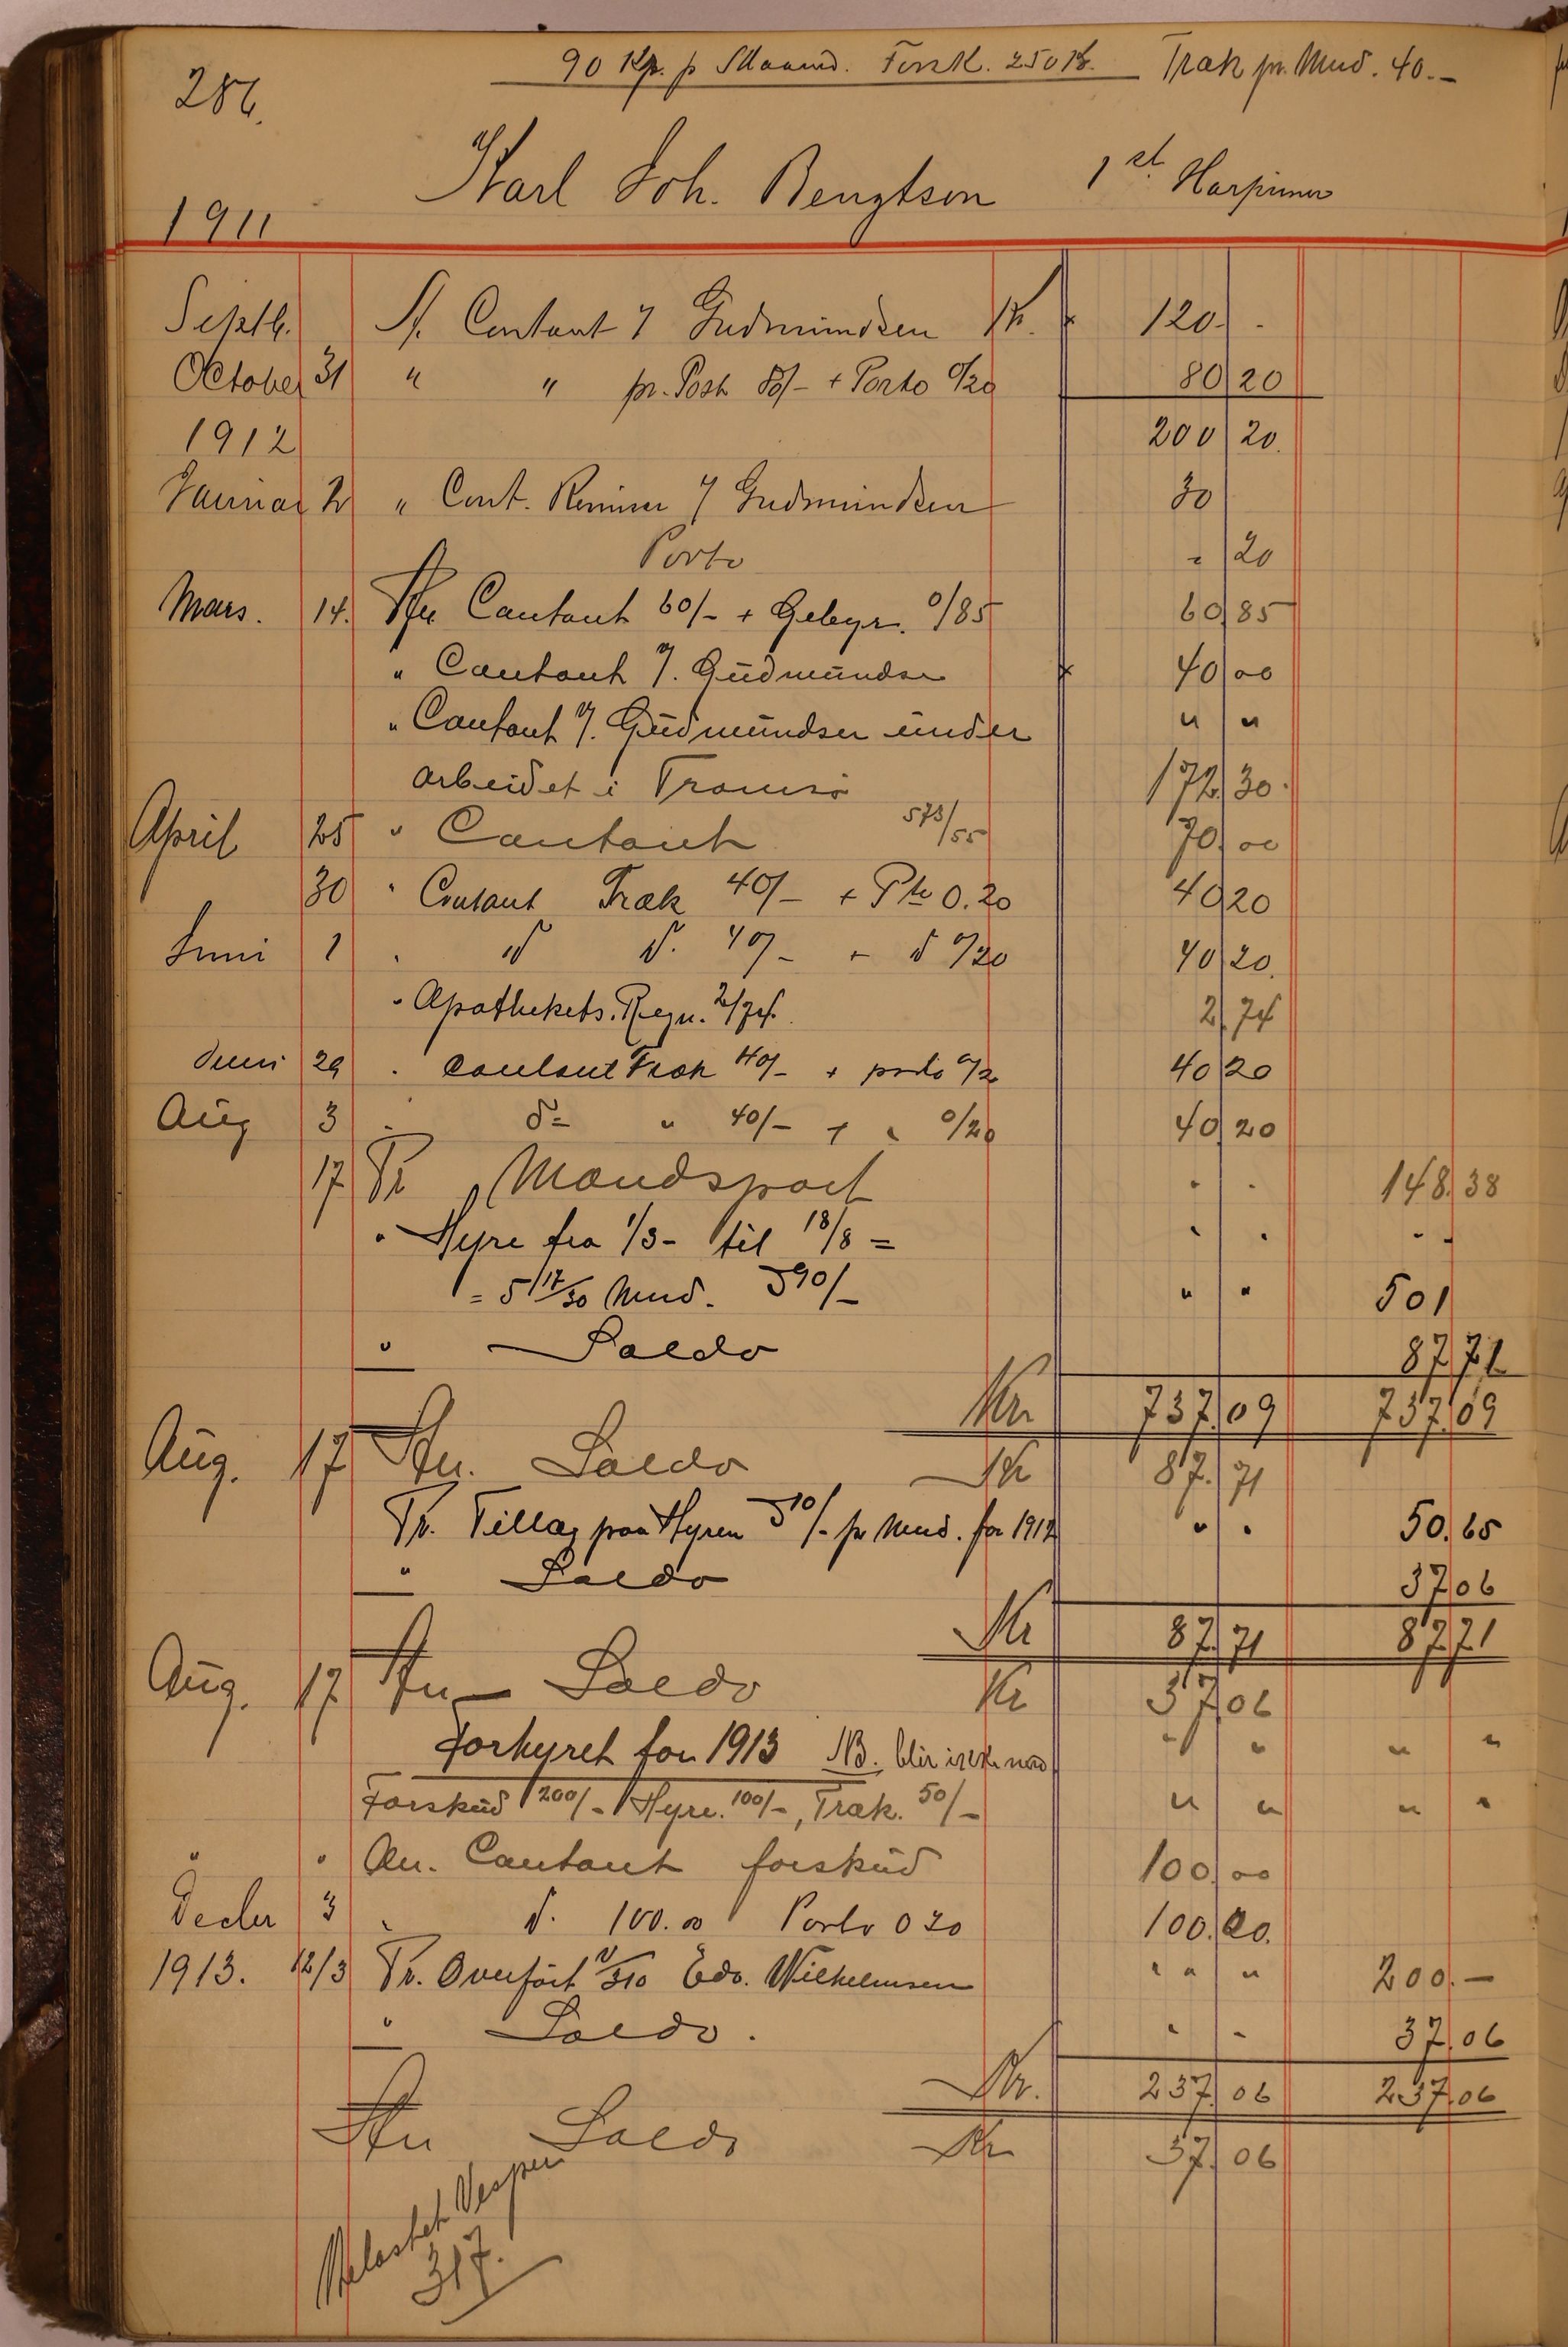 286.
90 Kr. p Maaned. Forsk. 250 Kr. Træk pr. Mnd. 40.-
Karl Joh. Bengtson 1st Harpuner
1911
Septb. A. Contant v/ Gudmundsen Kr. 120. -
October 31 " " pr. Post 80/- + Porto 0/20 80 20
1912 200 20.
Januar 2 " Cont. v/ Gudmundsen 30
Porto - 20
Mars. 14. An Contant 60/- + Gebyr. 0/85 60 85
" Contant v/. Gudmundsen 40 00
" Contant v/. Gudmundsen under " "
arbeidet i Tromsø 172 30.
April 25 " Contant 573/55 70 00
30 " Contant Træk 40/- + Pto 0.20 40 20
Juni 1 " do do. 40/- + do 0/20 40 20.
" Apothekets. Regn. 2/74. 2 74
Juni 29 " Contant Træk 40/- + porto 0/20 40 20
Aug 3 " do " 40/- + " 0/20 40 20
17 Pr Mandspart " " 148. 38
" Hyre fra 1/3 - til 18/8 = " " - -
= 5 17/30 Mnd. à 90/- " " 501
" Saldo 87 71
Kr 737 09 737 09
Aug. 17 An. Saldo Kr 87. 71
Pr. Tillæg paa Hyren à 10/- pr Mnd. for 1912 " " 50. 65
" Saldo 37 06
Kr 87. 71 87 71
Aug. 17 An Saldo Kr 37 06
Forhyret for 1913 NB. blir ikke med " " " "
Forskud 200/- Hyre. 100/-, Træk. 50/- " " " "
" " An. Contant forskud 100 00
Decbr 3 " do. 100.00 Porto 0 20 100. 00.
1913. 12/3 Pr. Overført 310 Edv. Wilhelmsen " " " 200. -
" Saldo. " - 37. 06
Kr. 237 06 237. 06
An Saldo Kr 37. 06
Belastet Vesper
317.